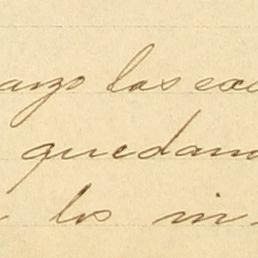 arzo las exc
quedand
los in